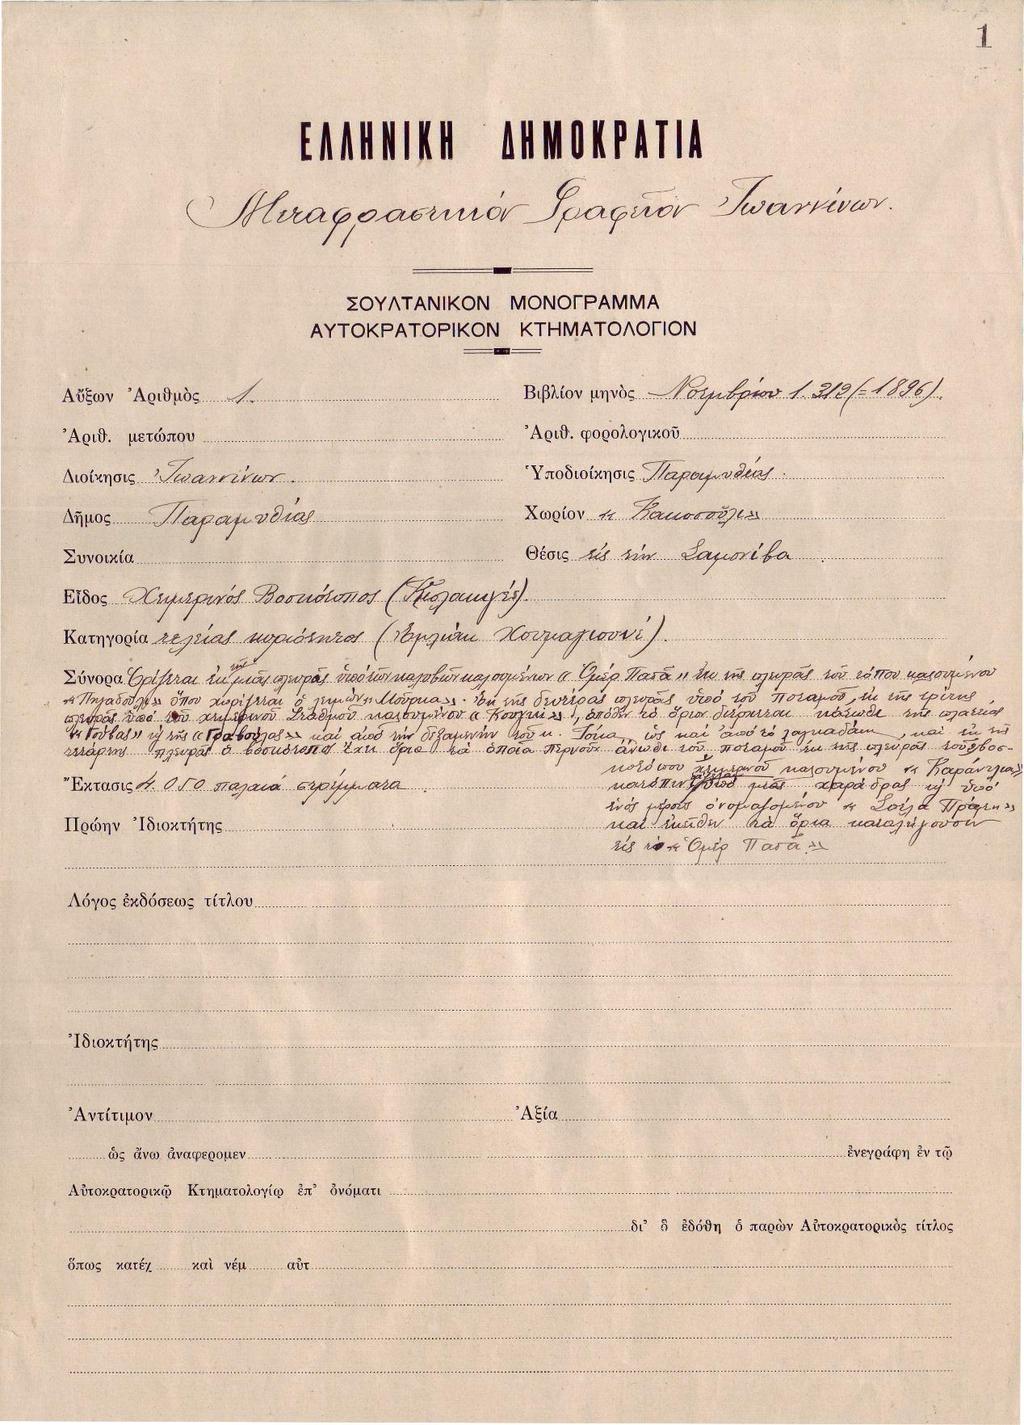 1
ΕΛΛΗΝΙΚΗ ΔΗΜΟΚΡΑΤΙΑ
Μεταφραστικόν Γραφεῖον Ἰωαννίνων.
ΣΟΥΛΤΑΝΙΚΟΝ ΜΟΝΟΓΡΑΜΜΑ
ΑΥΤΟΚΡΑΤΟΡΙΚΟΝ ΚΤΗΜΑΤΟΛΟΓΙΟΝ
Αὔξων Ἀριθμὸς 1. Βιβλίον μηνὸς Νοεμβρίου 1.312 (=1896).
Ἀριθ. μετώπου Ἀριθ. φορολογικοῦ
Διοίκησις Ἰωαννίνων. Ὑποδιοίκησις Παραμυθιᾶς.
Δῆμος Παραμυθιᾶς Χωρίον « Κακοσοῦλι»
Συνοικία Θέσις εἰς τὴν Σαμονίβα.
Εἶδος Χειμερινός Βοσκότοπος (Κισλακιγιές).
Κατηγορία τελείας κυριότητος ( Ἐμλιάκ Χουμαγιουνί ).
Σύνορα Ὁρίζεται ἐκ τῆς μιᾶς πλευρᾶς ὑπό τῶν καλουμένων « Ὀμέρ Πασᾶ » ἐκ τῆς πλευρᾶς τοῦ τόπου καλουμένου
« Πηγαδούλι» ὅπου χωρίζεται ὁ « Μούρκα». Ἐκ τῆς δευτέρας πλευρᾶς ὑπό τοῦ ποταμοῦ, ἐκ τῆς τρίτης
πλευρᾶς ὑπό τοῦ χειμερινοῦ Σταθμοῦ καλουμένου « », ὁπόθεν τό ὅριον διέρχεται κάτωθι τῆς πλατείας
καί ἀπό τήν δεξαμενήν τοῦ κ. , ὡς καί ἀπό τό , καί ἐκ τῆς
τετάρτης πλευρᾶς ὁ βοσκότοπος ἔχει ὅρια τά ὁποῖα περνοῦν ἄνωθι τοῦ ποταμοῦ ἐκ τῆς πλευρᾶς τοῦ βοσ-
κοτόπου χειμερινοῦ καλουμένου «
Ἔκτασις 4.050 παλαιά στρέμματα. κατόπιν ὑπό μιᾶς χαράδρας ὑπό
ἑνός μέρους ὀνομαζομένου «
Πρώην Ἰδιοκτήτης καί ἐκεῖθεν τά ὅρια καταλήγουσιν
εἰς τό « Ὀμέρ Πασᾶ.»
Λόγος ἐκδόσεως τίτλου
Ἰδιοκτήτης
Ἀντίτιμον Ἀξία
ὡς ἄνω ἀναφερομεν ἐνεγράφη ἐν τῷ
Αὐτοκρατορικῷ Κτηματολογίῳ ἐπ' ὀνόματι
δι' ὃ ἐδόθη ὁ παρὼν Αὐτοκρατορικὸς τίτλος
ὅπως κατέχ καὶ νέμ αὐτ